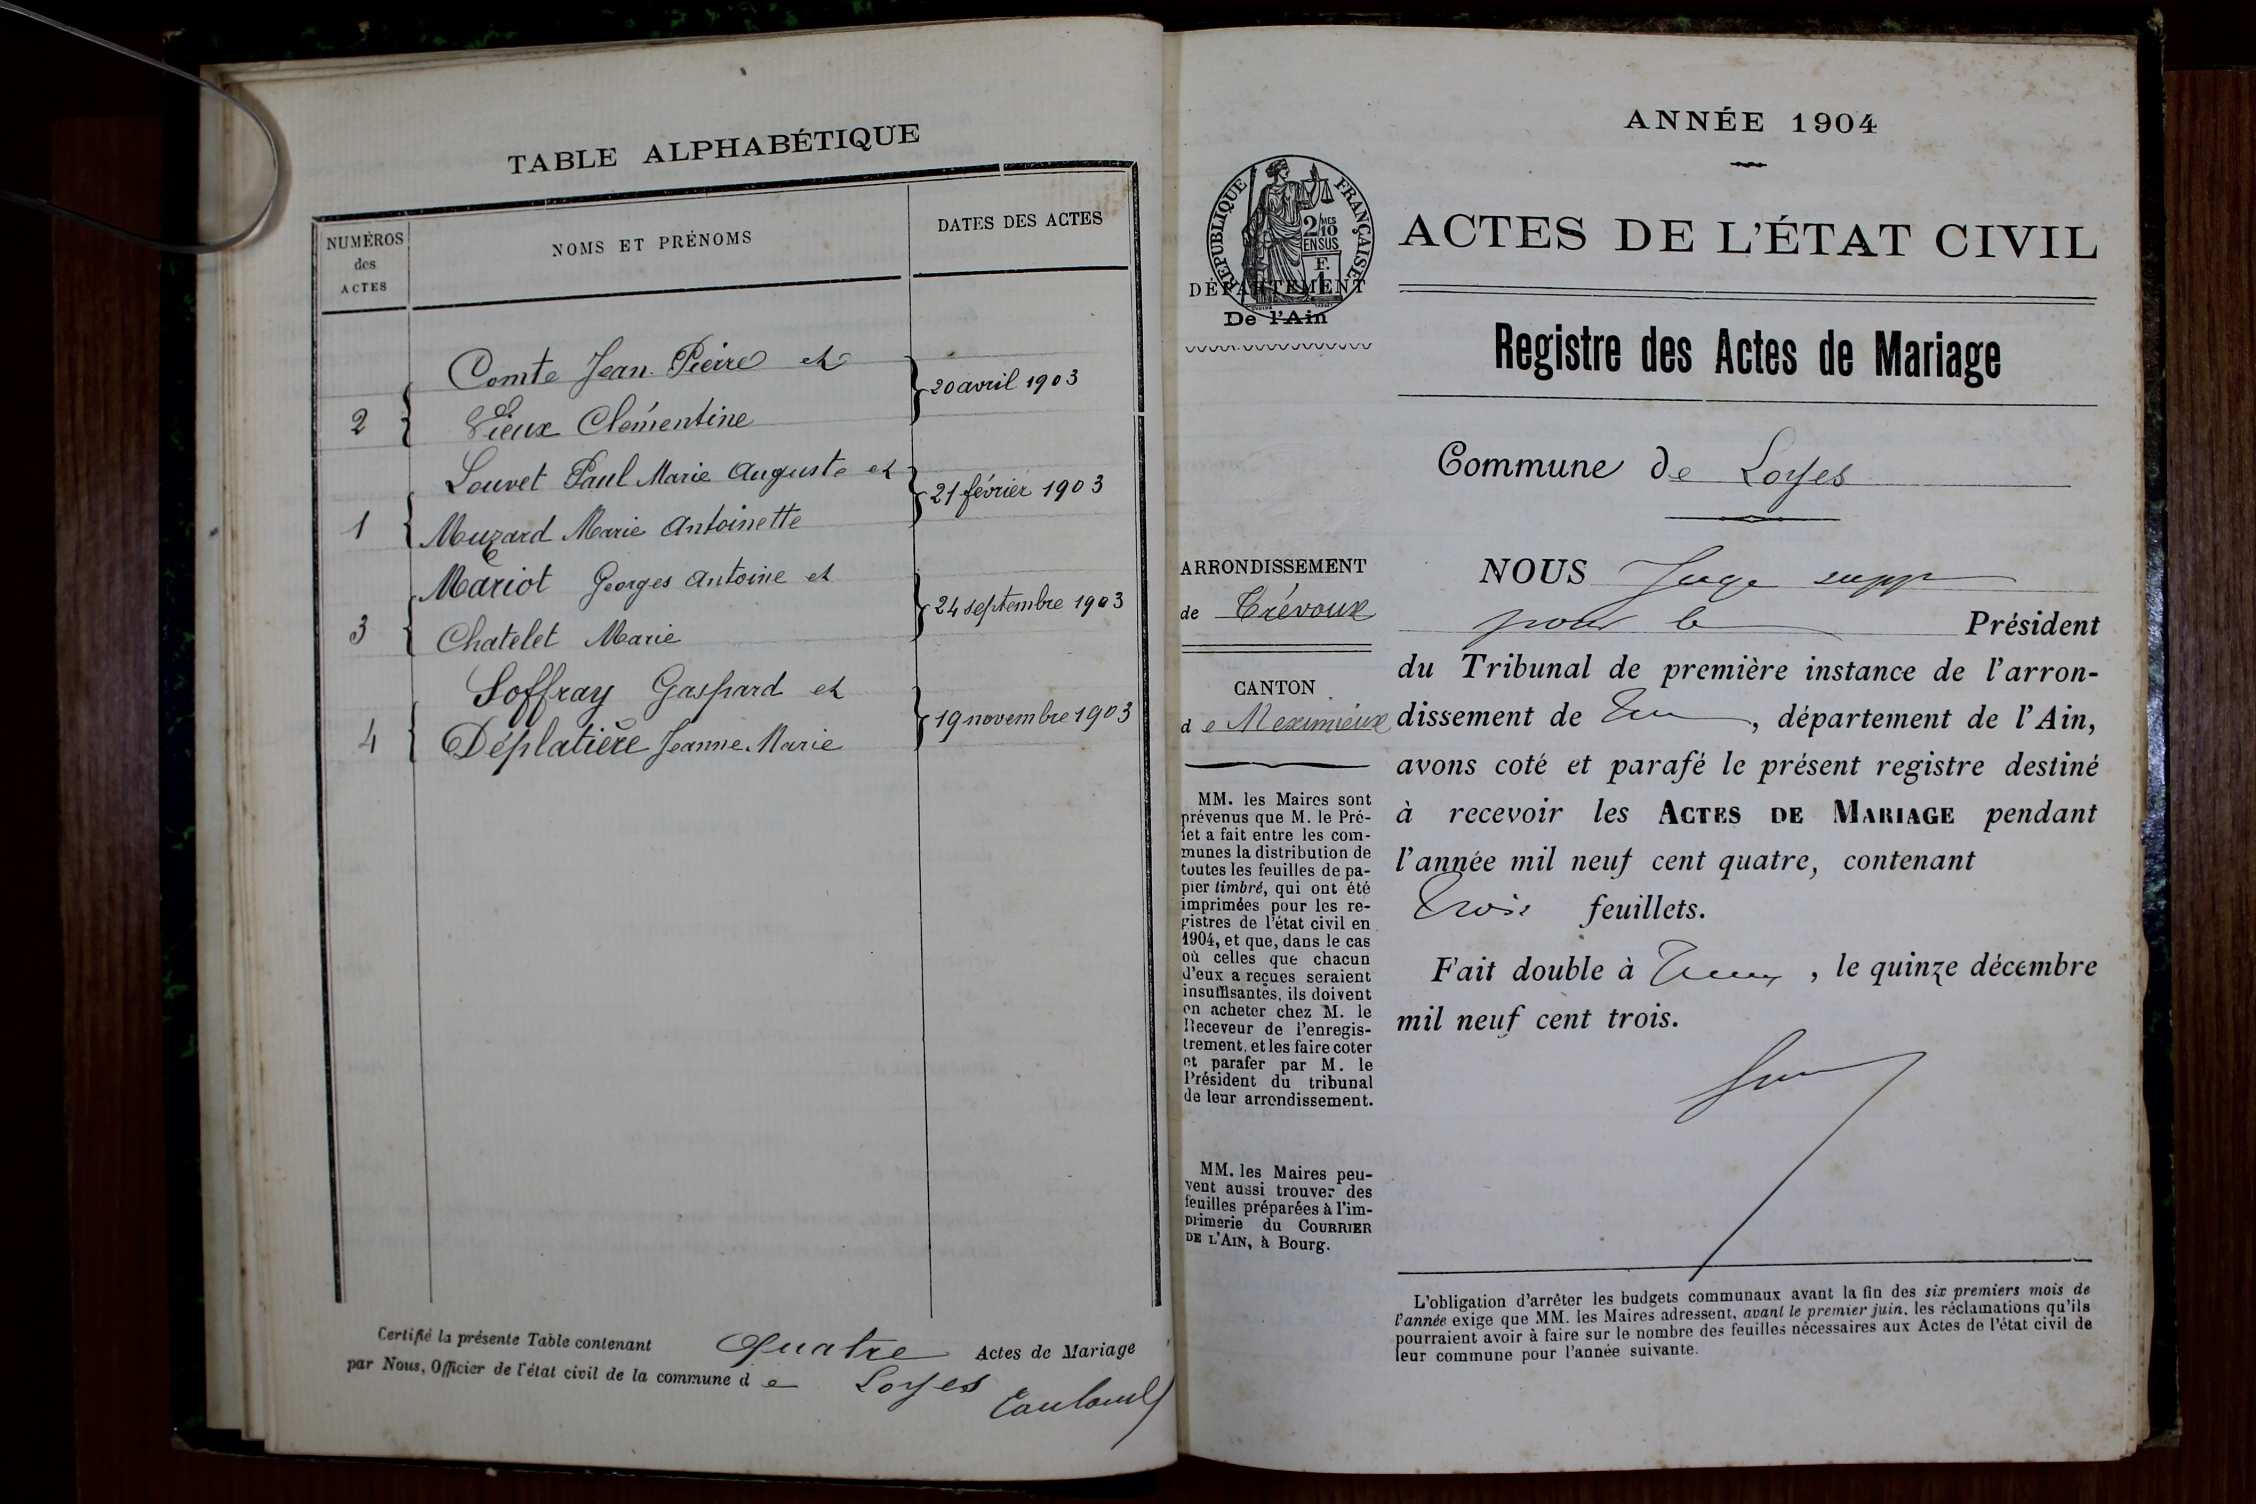 TABLE ALPHABÉTIQUE
NUMÉROS
des
ACTES
NOMS ET PRÉNOMS
DATES DES ACTES
Comte Jean Pierre et
20 avril 1903
2
Vieux Clémentine
Louvet Paul Marie Auguste et
21 février 1903
1
Muzard Marie Antoinette
Mariot Georges Antoine et
24 septembre 1903
3
Chatelet Marie
Soffray Gaspard et
19 novembre 1903
4
Déplatière Jeanne Marie
Certifié la présente Table contenant Quatre Actes de Mariage
par Nous, Officier de l'état civil de la commune de Loyes
ANNÉE 1904
RÉPUBLIQUE FRANÇAISE
2/10MES
EN SUS
F.
1
DÉPARTEMENT
De l'Ain
ACTES DE L'ÉTAT CIVIL
Registre des Actes de Mariage
Commune de Loyes
ARRONDISSEMENT
de Trévoux
CANTON
de Meximieux
MM. les Maires sont
prévenus que M. le Pré-
fet a fait entre les com-
munes la distribution de
toutes les feuilles de pa-
pier timbré, qui ont été
imprimées pour les re-
gistres de l'état civil en
1904, et que, dans le cas
où celles que chacun
d'eux a reçues seraient
insuffisantes, ils doivent
en acheter chez M. le
Receveur de l'enregis-
trement, et les faire coter
et parafer par M. le
Président du tribunal
de leur arrondissement.
MM. les Maires peu-
vent aussi trouver des
feuilles préparées à l'im-
primerie du COURRIER
DE L'AIN, à Bourg.
NOUS Juge supp
pour le Président
du Tribunal de première instance de l'arron-
dissement de , département de l'Ain,
avons coté et parafé le présent registre destiné
à recevoir les ACTES DE MARIAGE pendant
l'année mil neuf cent quatre, contenant
Trois feuillets.
Fait double à , le quinze décembre
mil neuf cent trois.
L'obligation d'arrêter les budgets communaux avant la fin des six premiers mois de
l'année exige que MM. les Maires adressent, avant le premier juin, les réclamations qu'ils
pourraient avoir à faire sur le nombre des feuilles nécessaires aux Actes de l'état civil de
leur commune pour l'année suivante.